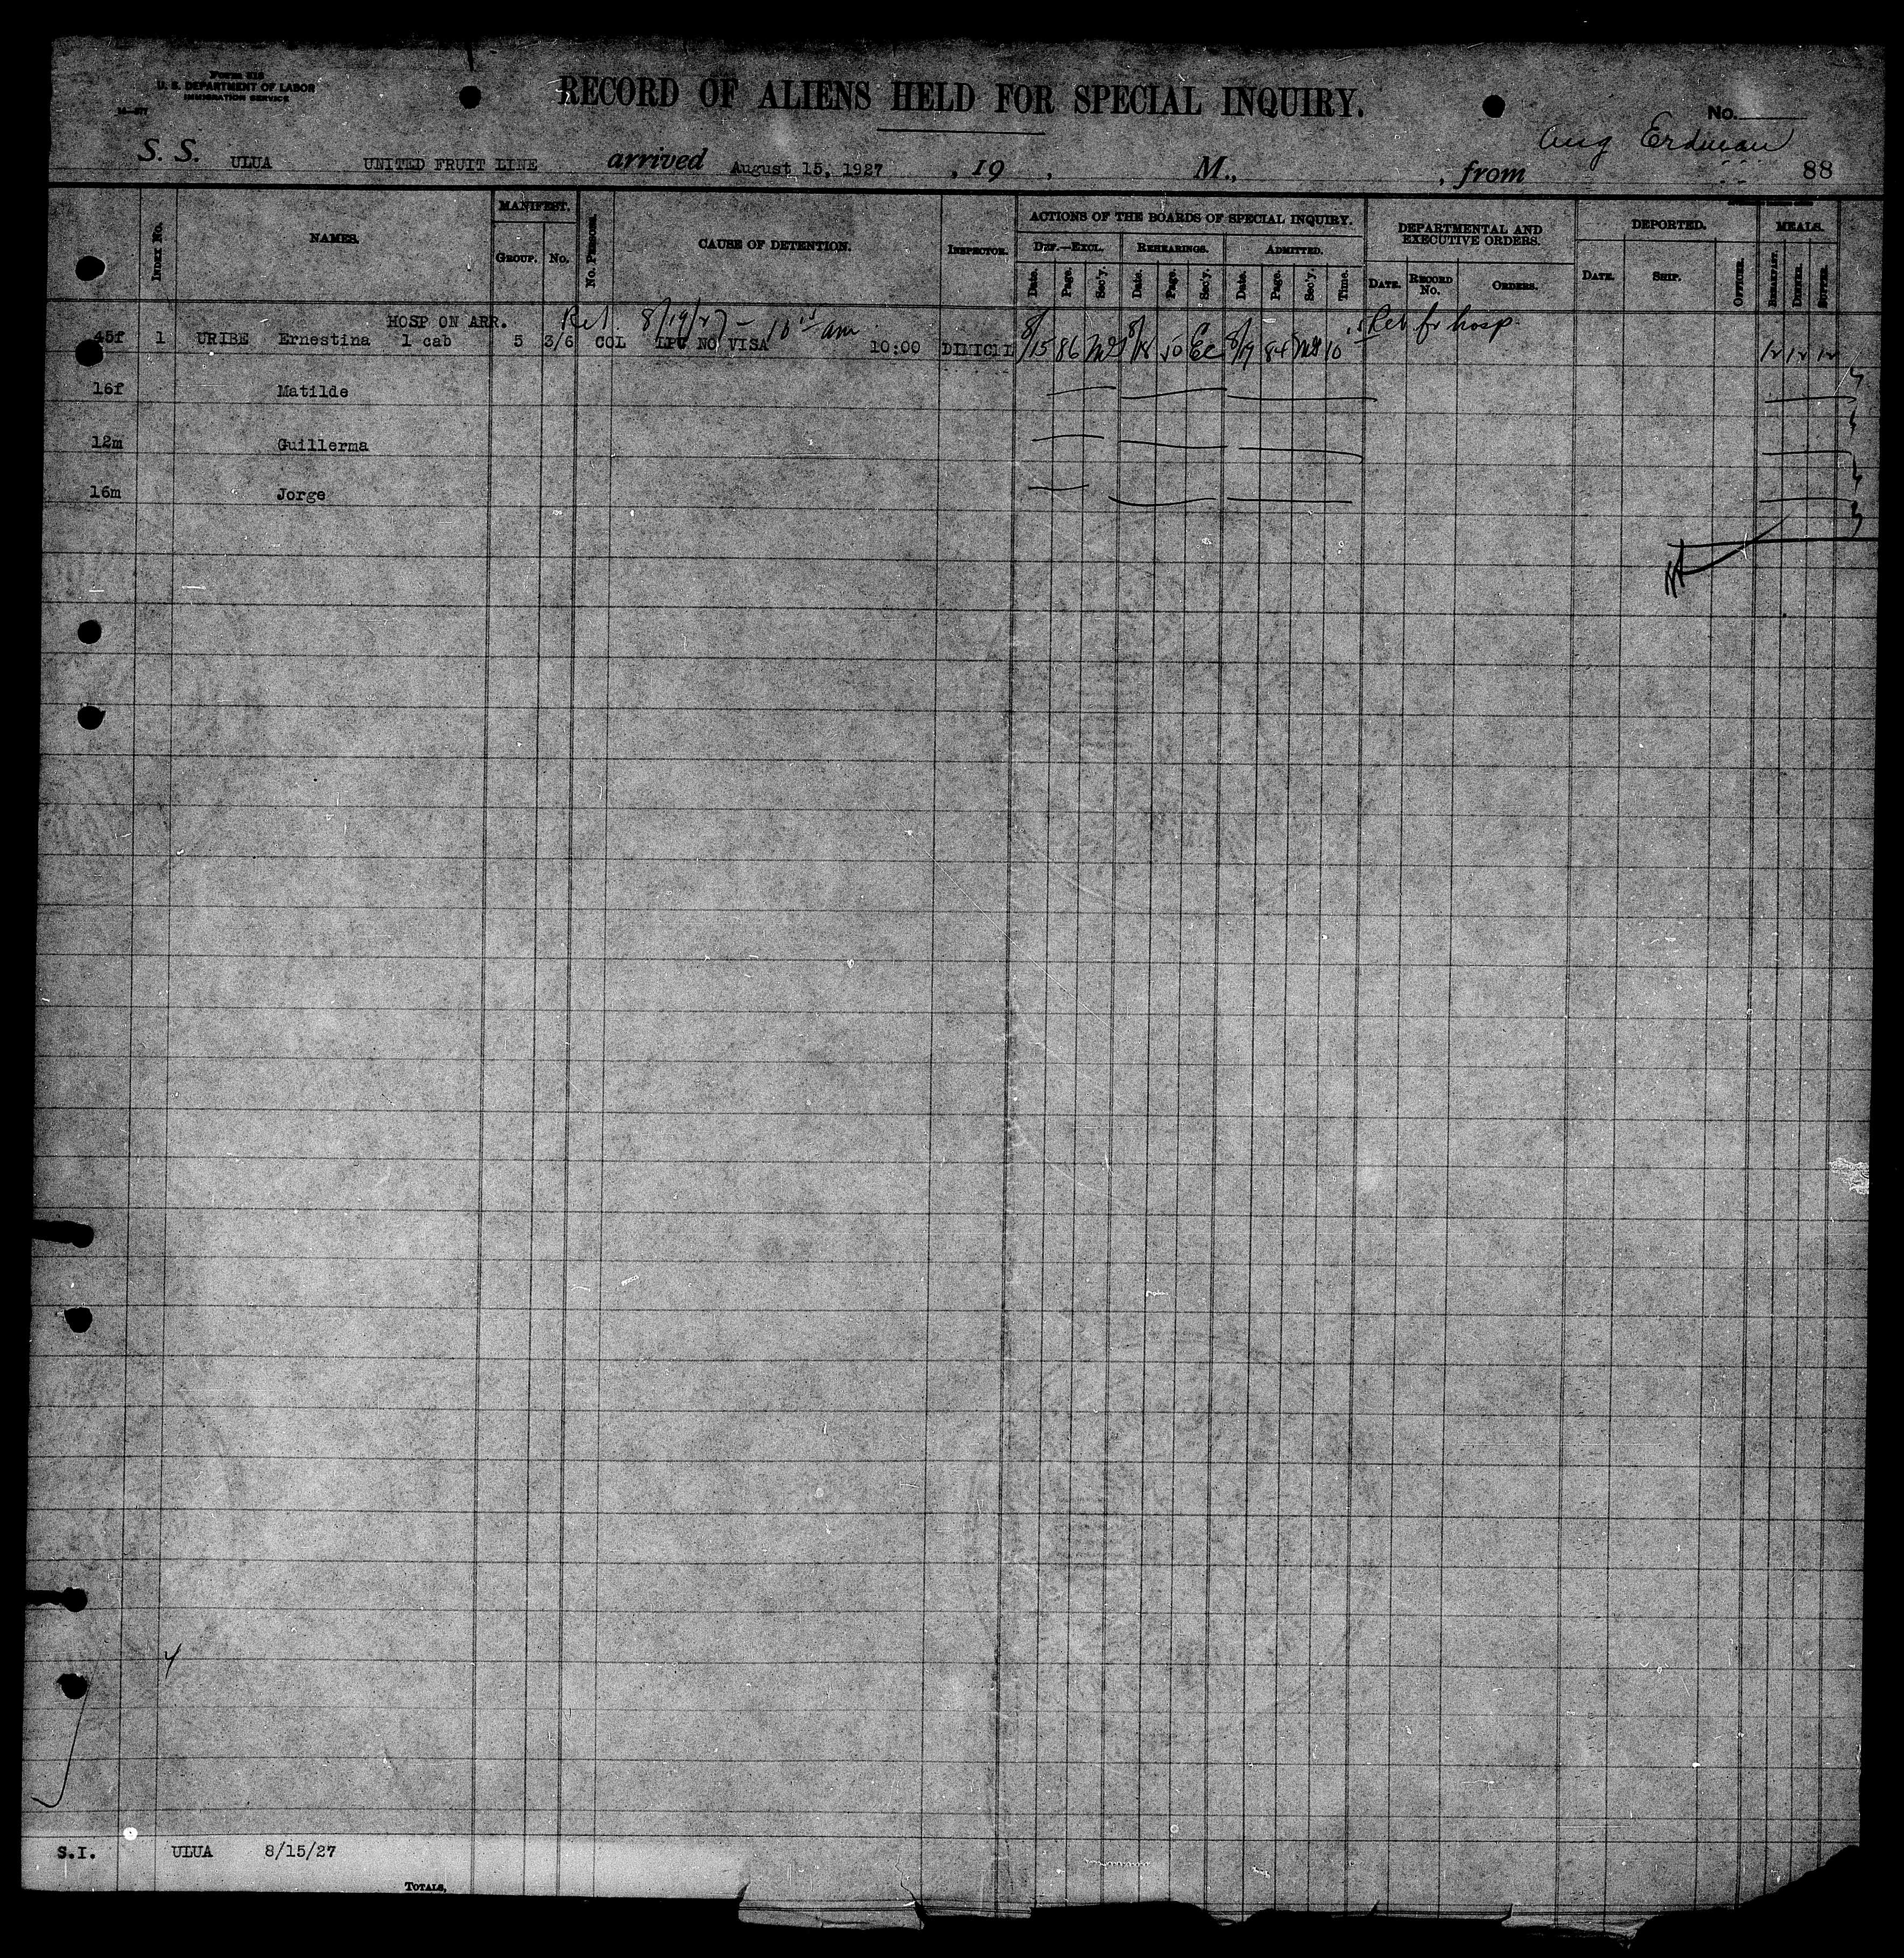 Form 518
U. S. DEPARTMENT OF LABOR
IMMIGRATION SERVICE
RECORD OF ALIENS HELD FOR SPECIAL INQUIRY.
No.
Aug Erdman
S. S. ULUA UNITED FRUIT LINE arrived August 15, 1927 , 19 , M., , from 88
INDEX No. NAMES. MANIFEST. GROUP. No. No. PERSONS. CAUSE OF DETENTION. INSPECTOR. ACTIONS OF THE BOARDS OF SPECIAL INQUIRY. DEF.—EXCL. REHEARINGS. ADMITTED. Date. Page. Sec'y. Date. Page. Sec'y. Date. Page. Sec'y. Time. DEPARTMENTAL AND EXECUTIVE ORDERS. DATE. RECORD No. ORDERS. DEPORTED. DATE. SHIP. OFFICER. MEALS. BREAKFAST. DINNER. SUPPER.
HOSP ON ARR. Ret. 8/19/27 - 10 15 am Ret fr hosp
45f 1 URIBE Ernestina 1 cab 5 3/6 COL LPC NO VISA 10:00 8/15 86 8/18 50 Ec 8/19 84 10 15 12 12 12
16f Matilde
12m Guillerma
16m Jorge
4
S.I. ULUA 8/15/27
TOTALS,